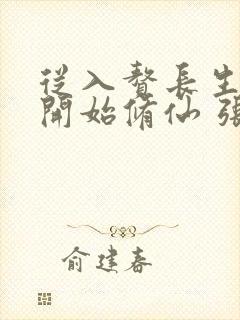 從入贅長生
開始脩仙 張
俞建春